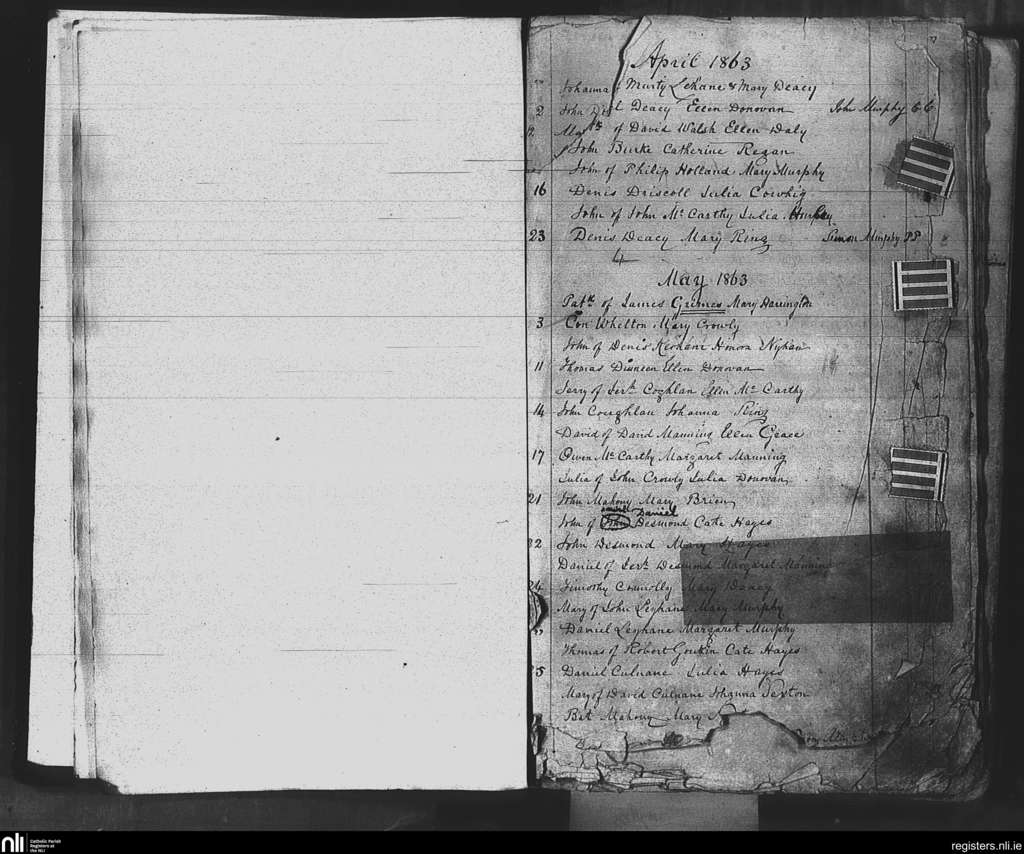 April 1863
" Johanna of Murty Lehane & Mary Deacy
2 John Deacy Ellen Donovan John Murphy CC
12 of David Walsh Ellen Daly
John Burke Catherine Regan
John of Philip Holland Mary Murphy
16 Denis Driscoll Julia Cowhig
John of John Mc Carthy Julia
23 Denis Deacy Mary Ring Simon Murphy PP
4
May 1863
Patk of James Grimes Mary Harrington
3 Con Whelton Mary Crowly
John of Denis Honora Nyhan
11 Thomas Dinneen Ellen Donovan 14
Jerry of Jerh Coghlan Ellen Mc Carthy
14 John Coughlan Johanna Ring
David of David Manning Ellen Grace
17 Owen Mc Carthy Margaret Manning
Julia of John Crowly Julia Donovan
21 John Mahony Mary Brien
Daniel
John of John Desmond Cate Hayes
22 John Desmond Mary Hayes
Daniel of Jerh Desmond Margaret Manning
24 Timothy Connolly Mary Deacy
Mary of John Leghane Mary Murphy
" Daniel Leghane Margaret Murphy
Thomas of Robert Cate Hayes
25 Daniel Culnane Julia Hayes
Mary of David Culnane Johanna Sexton
Bat Mahony Mary
nli Catholic Parish Registers at the NLI
registers.nli.ie